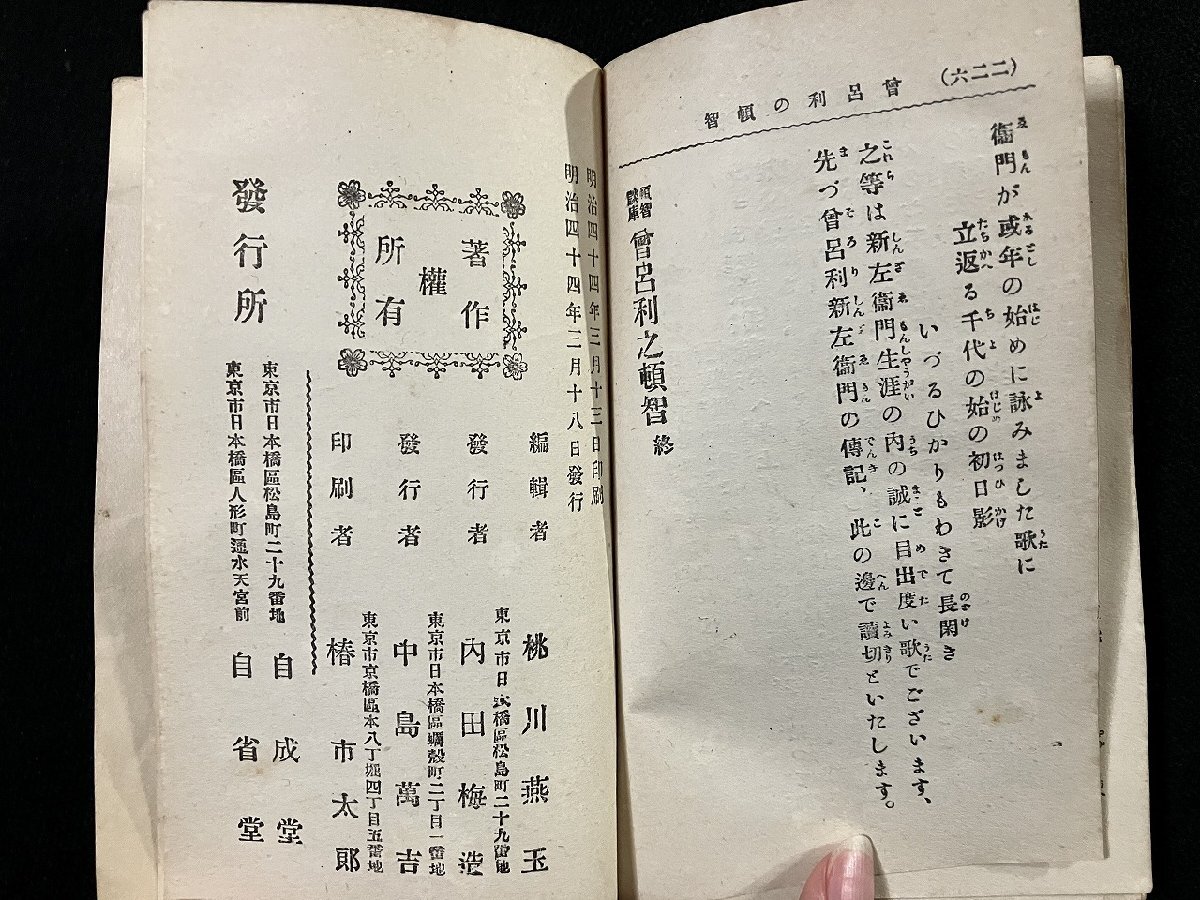 (二二六)
曾呂利の頓智
衞門が或年の始めに詠みました歌に
立返る千代の始の初日影
いづるひかりもわきて長閑き
之等は新左衞門生涯の内の誠に目出度い歌でございます、
先づ曾呂利新左衞門の傳記、此の邊で讀切といたします。
頓智
曾呂利之頓智 終
明治四十四年三月十三日印刷
明治四十四年三月十八日發行
著作
權
所有
編輯者 桃川燕玉
東京市日本橋區松島町二十九番地
發行者 内田梅造
東京市日本橋區蠣殼町二丁目一番地
發行者 中島萬吉
東京市京橋區本八丁堀四丁目五番地
印刷者 椿市太郎
發行所
東京市日本橋區松島町二十九番地 自成堂
東京市日本橋區人形町通水天宮前 自省堂